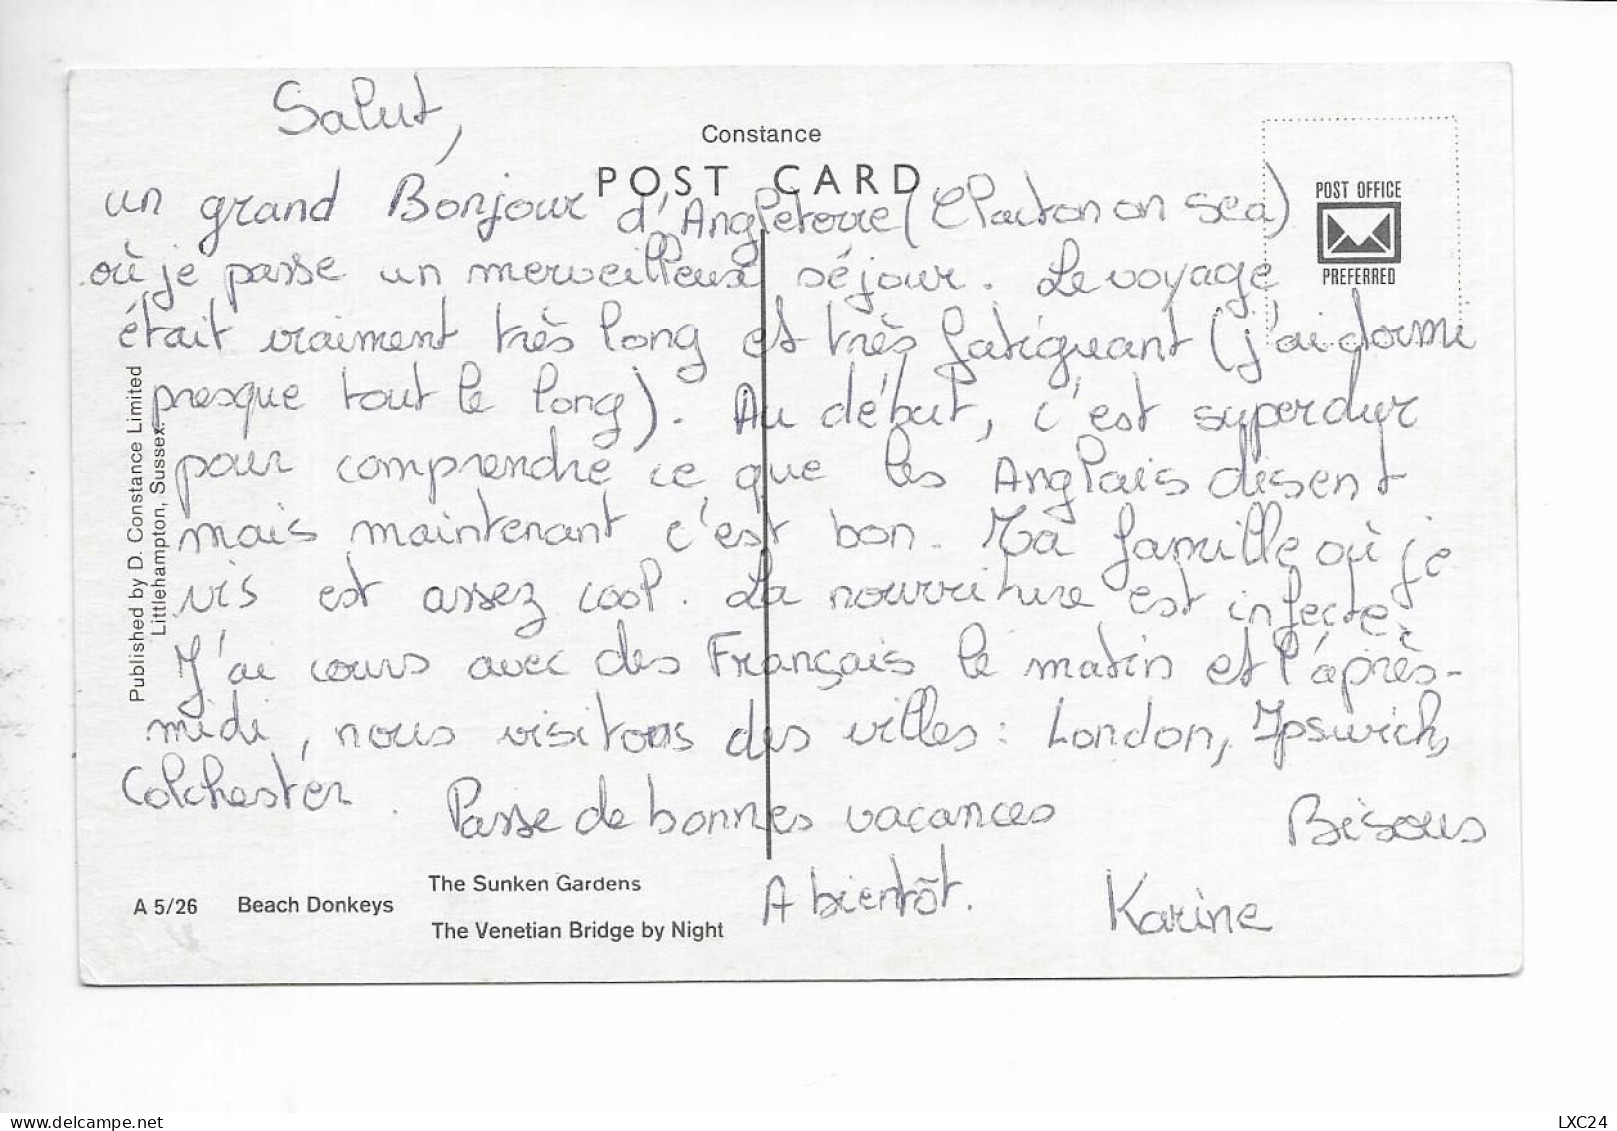 Salut,
Constance
POST CARD
un grand Bonjour d'Angleterre (Clacton on sea)
POST OFFICE
PREFERRED
où je passe un merveilleux séjour. Le voyage
était vraiment très long et très fatiguant (j'ai dormi
presque tout le long). Au début, c'est super dur
pour comprendre ce que les Anglais disent
mais maintenant c'est bon. Ma famille où je
vis est assez cool. La nourriture est infecte.
J'ai cours avec des Français le matin et l'après-
midi, nous visitons des villes : London, Ipswich,
Colchester. Passe de bonnes vacances
Bisous
A bientôt.
Karine
Published by D. Constance Limited
Littlehampton, Sussex.
A 5/26 Beach Donkeys
The Sunken Gardens
The Venetian Bridge by Night
www.delcampe.net
LXC24